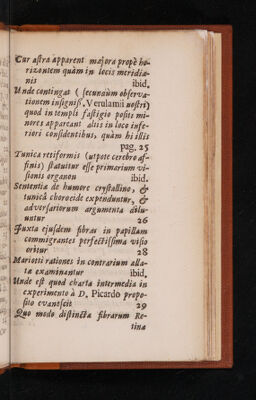 Cur astra apparent majora propè ho-
rizontem quàm in locis meridia-
nis ibid.
Unde contingat ( secundùm observa-
tionem insigniss. Verulamii nostri)
quod in templi fastigio positi mi-
nores appareant aliis in loco infe-
riori consistentibus, quàm hi illis
pag. 25
Tunica retiformis (utpote cerebro af-
finis) statuitur esse primarium vi-
sionis organon ibid.
Sententia de humore crystallino, &
tunicâ choroeide expenduntur, &
adversariorum argumenta dilu-
untur 26
Juxta ejusdem fibras in papillam
commigrantes perfectissima visio
oritur 28
Mariotti rationes in contrarium alla-
ta examinantur ibid.
Unde est quod charta intermedia in
experimento à D. Picardo propo-
sito evanescit 29
Quo modo distincta fibrarum Re-
tina